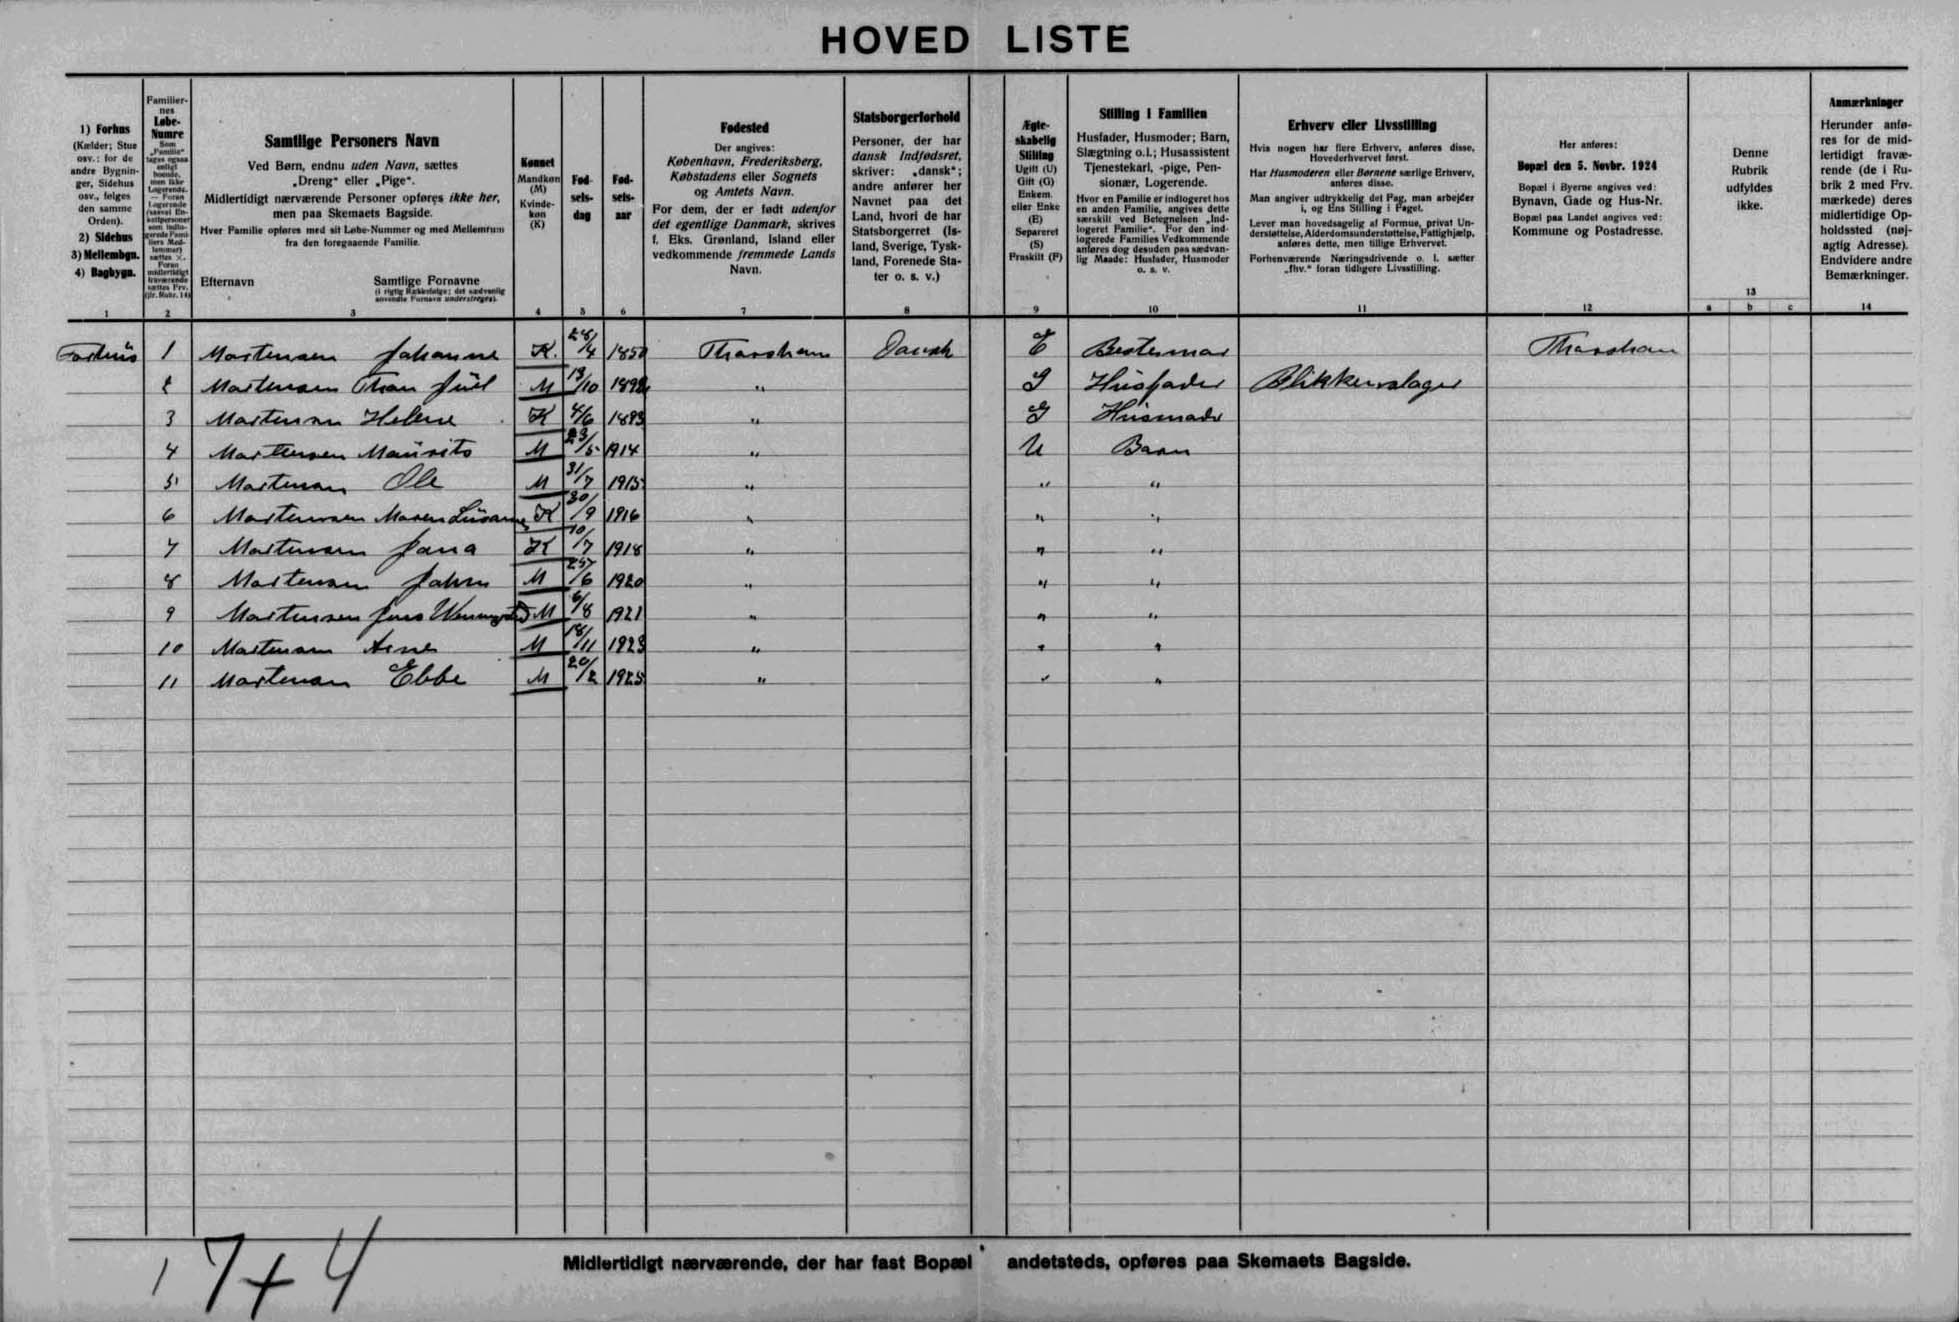 HOVED LISTE
1) Forhus
(Kælder; Stue
osv.: for de
andre Bygnin-
ger, Sidehus
osv., følges
den samme
Orden).
2) Sidehus
3) Mellembgn.
4) Bagbygn.
1
Familier-
nes
Løbe-
Numre
2
Samtlige Personers Navn
Ved Børn, endnu uden Navn, sættes
„Dreng“ eller „Pige“.
Midlertidigt nærværende Personer opføres ikke her,
men paa Skemaets Bagside.
Hver Familie opføres med sit Løbe-Nummer og med Mellemrum
fra den foregaaende Familie.
Efternavn Samtlige Fornavne
(i rigtig Rækkefølge; det sædvanlig
anvendte Fornavn understreges).
3
Kønnet
Mandkøn
(M)
Kvinde-
køn
(K)
4
Fød-
sels-
dag
5
Fød-
sels-
aar
6
Fødested
Der angives:
København, Frederiksberg,
Købstadens eller Sognets
og Amtets Navn.
For dem, der er født udenfor
det egentlige Danmark, skrives
f. Eks. Grønland, Island eller
vedkommende fremmede Lands
Navn.
7
Statsborgerforhold
Personer, der har
dansk Indfødsret,
skriver: „dansk“;
andre anfører her
Navnet paa det
Land, hvori de har
Statsborgerret (Is-
land, Sverige, Tysk-
land, Forenede Sta-
ter o. s. v.)
8
Ægte-
skabelig
Stilling
Ugift (U)
Gift (G)
Enkem.
eller Enke
(E)
Separeret
(S)
Fraskilt (F)
9
Stilling i Familien
Husfader, Husmoder; Barn,
Slægtning o.l.; Husassistent
Tjenestekarl, -pige, Pen-
sionær, Logerende.
Hvor en Familie er indlogeret hos
en anden Familie, angives dette
særskilt ved Betegnelsen „Ind-
logeret Familie“. For den ind-
logerede Families Vedkommende
anføres dog desuden paa sædvan-
lig Maade: Husfader, Husmoder
o. s. v.
10
Erhverv eller Livsstilling
Hvis nogen har flere Erhverv, anføres disse,
Hovederhvervet først.
Har Husmoderen eller Børnene særlige Erhverv,
anføres disse.
Man angiver udtrykkelig det Fag, man arbejder
i, og Ens Stilling i Faget.
Lever man hovedsagelig af Formue, privat Un-
derstøttelse, Alderdomsunderstøttelse, Fattighjælp,
anføres dette, men tillige Erhvervet.
Forhenværende Næringsdrivende o. l. sætter
„fhv.“ foran tidligere Livsstilling.
11
Her anføres:
Bopæl den 5. Novbr. 1924
Bopæl i Byerne angives ved:
Bynavn, Gade og Hus-Nr.
Bopæl paa Landet angives ved:
Kommune og Postadresse.
12
Denne
Rubrik
udfyldes
ikke.
13
a b c
Anmærkninger
Herunder anfø-
res for de mid-
lertidigt fravæ-
rende (de i Ru-
brik 2 med Frv.
mærkede) deres
midlertidige Op-
holdssted (nøj-
agtig Adresse).
Endvidere andre
Bemærkninger.
14
Forhus 1 Mortensen Johanne K. 28/4 1850 Thorshavn Dansk E Bestemor Thorshavn
2 Mortensen Juul M 13/10 1892 " G Husfader Blikkenslager
3 Mortensen Helene K 4/6 1893 " G Husmoder
4 Mortensen Maurits M 23/5 1914 " U Barn
5 Mortensen Ole M 31/7 1915 " " "
6 Mortensen Maren Susanne K 30/9 1916 " " "
7 Mortensen Jana K 10/7 1918 " " "
8 Mortensen Johan M 25/6 1920 " " "
9 Mortensen Jens M 6/8 1921 " " "
10 Mortensen Arne M 18/11 1923 " " "
11 Mortensen Ebbe M 20/2 1925 " " "
Midlertidigt nærværende, der har fast Bopæl andetsteds, opføres paa Skemaets Bagside.
7+4